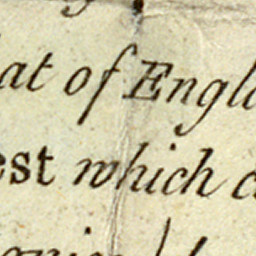 at of Engla
est which c